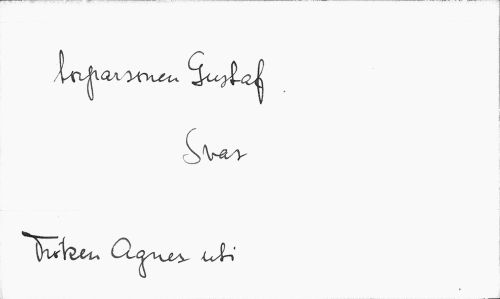 torparsonen Gustaf
Svar
Fröken Agnes uti